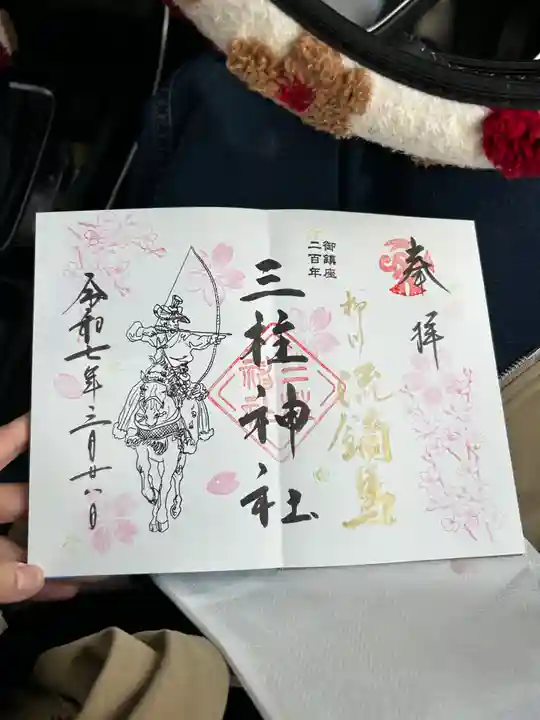 奉拝
柳川 流鏑馬
御鎮座
二百年
三柱神社
令和七年三月廿八日